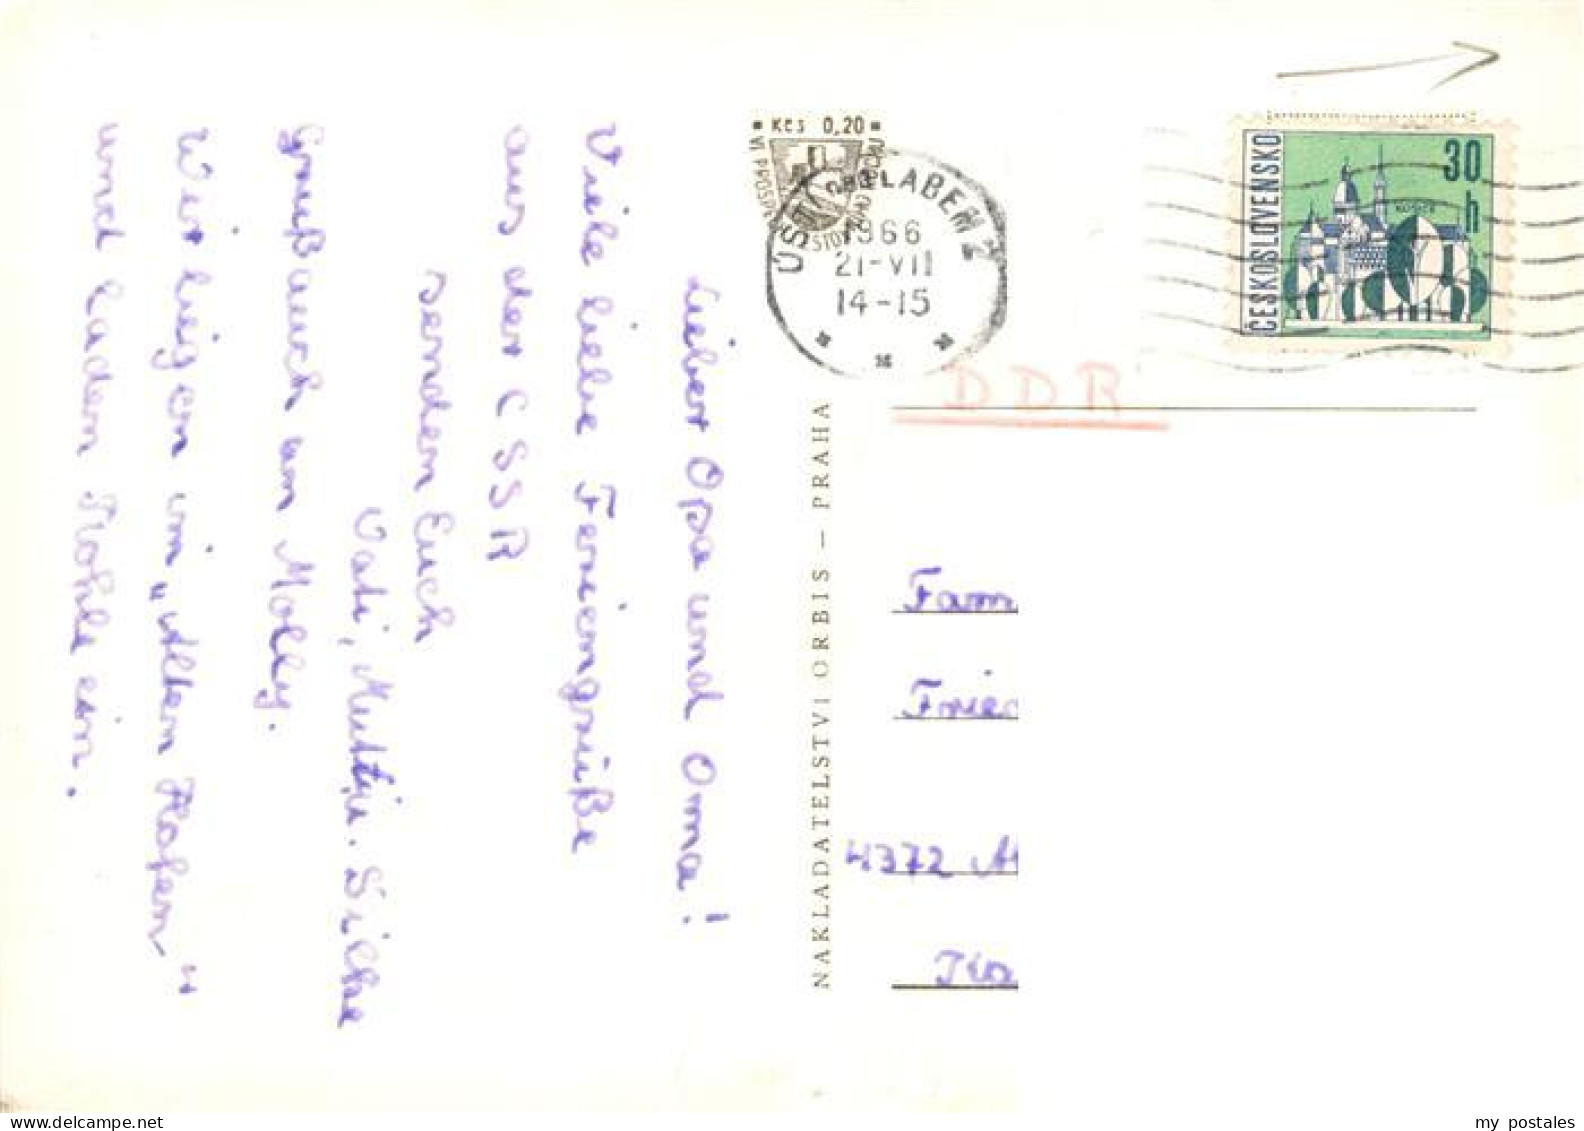 Lieber Opa und Oma!
Viele liebe Feriengrüße
aus der CSSR
senden Euch
Vati, Mutti u. Silke
Gruß auch an Molly.
Wir liegen im „Alten Hafen"
und laden Kohle ein.
Kčs 0,20
ÚSTÍ LABEM 2
1966
21-VII
14-15
ČESKOSLOVENSKO
30
h
DDR
NAKLADATELSTVÍ ORBIS — PRAHA
Fam
Fried
4372 A
my postales